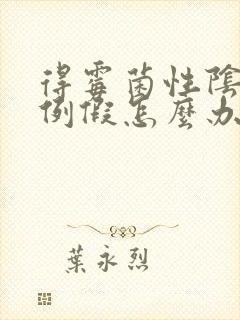 得霉菌性陰
例假怎麼办
葉永烈